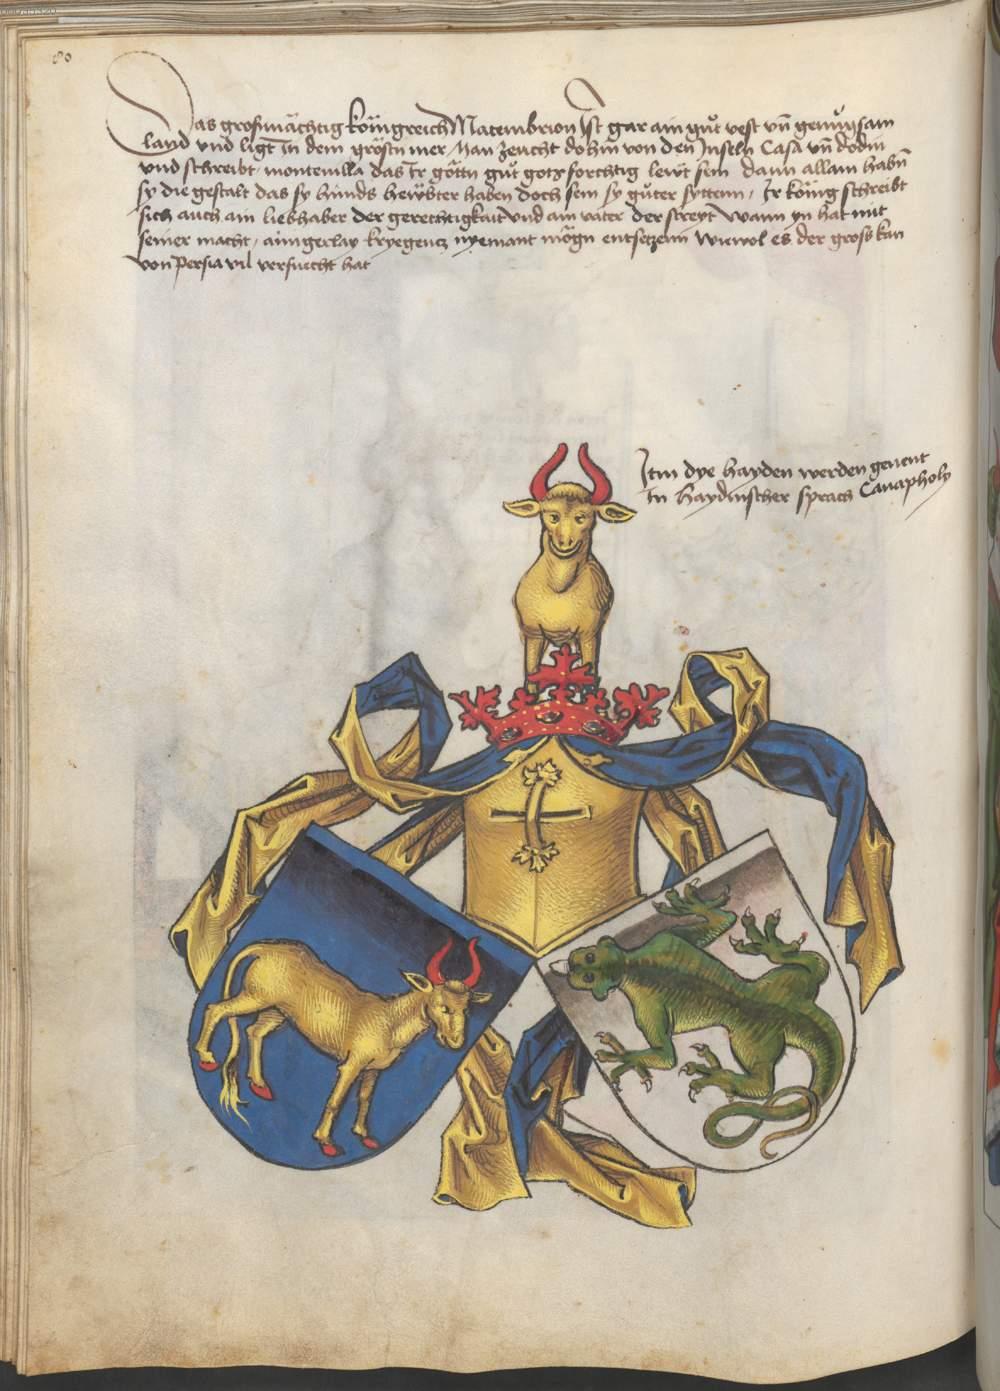 80
Das großmächtig köingreich Macembrion Ist gar ain gůt vest vn̄ genůgsam
land vnd ligt In dem grostn mer, Man zeucht dohin von den Inseln Casa vn̄ dodin
vnd schreibt, montevilla das Ir gőttn gůt gotzforchtig leẅt sein dann allain habn̄
sy die gestalt das sy hunds heẅbter haben doch sein sy gůter syttenn, Ir köing schreibt
sich auch ain liebhaber der gerechtigkait vnd ain vater der streyt Wann yn hat mit
seiner macht, ainigerlay kryegens nyemant mögn entsetzenn wiewol es der groß kan
von Persia vil versuecht hat
Itm dye hayden werden genent
In haydnischer sprach Canapholy